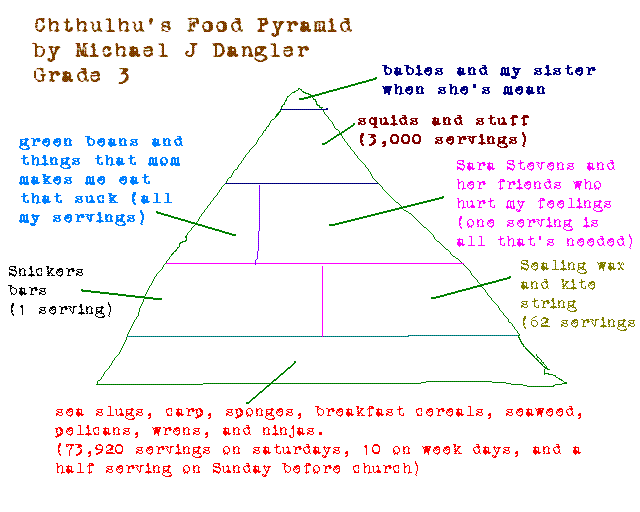 Chthulhu's Food Pyramid
by Michael J Dangler
Grade 3
babies and my sister
when she's mean
squids and stuff
(3,000 servings)
green beans and
things that mom
makes me eat
that suck (all
my servings)
Sara Stevens and
her friends who
hurt my feelings
(one serving is
all that's needed)
Snickers
bars
(1 serving)
Sealing wax
and kite
string
(62 servings
sea slugs, carp, sponges, breakfast cereals, seaweed,
pelicans, wrens, and ninjas.
(73,920 servings on saturdays, 10 on week days, and a
half serving on Sunday before church)